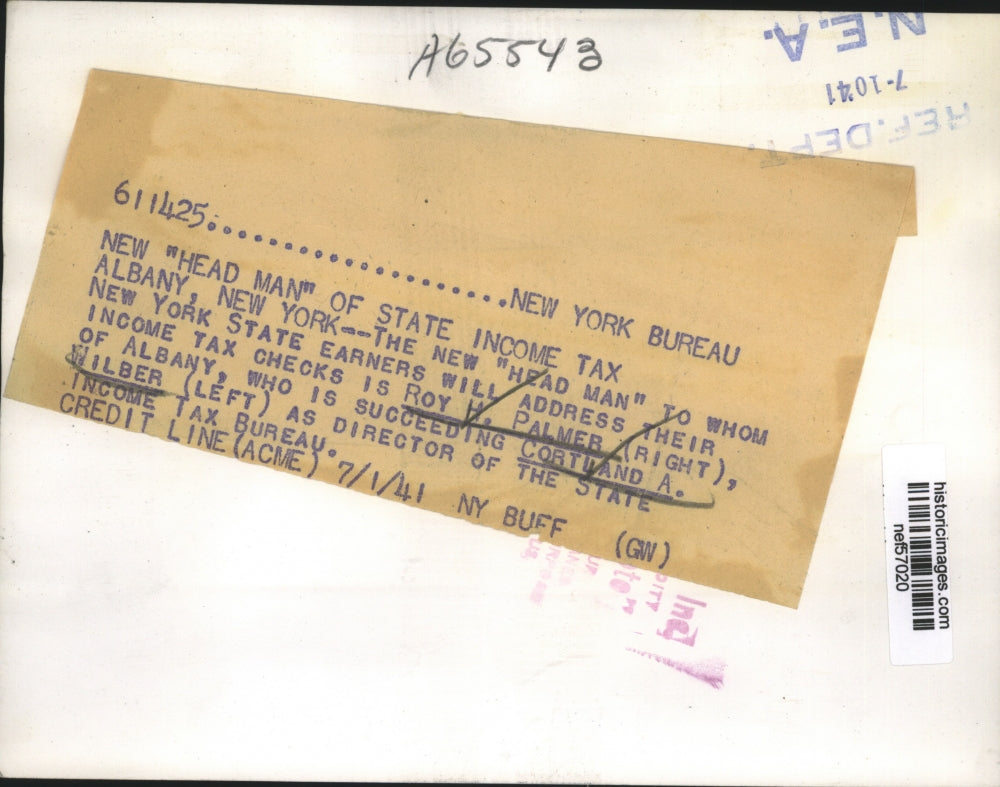 A65543
N.E.A.
7-1041
REF. DEPT.
611425:....................NEW YORK BUREAU
NEW "HEAD MAN" OF STATE INCOME TAX
ALBANY, NEW YORK--THE NEW "HEAD MAN" TO WHOM
NEW YORK STATE EARNERS WILL ADDRESS THEIR
INCOME TAX CHECKS IS ROY H. PALMER (RIGHT),
OF ALBANY, WHO IS SUCCEEDING CORTLAND A.
WILBER (LEFT) AS DIRECTOR OF THE STATE
INCOME TAX BUREAU.
CREDIT LINE (ACME) 7/1/41 NY BUFF (GW)
historicimages.com
nef57020